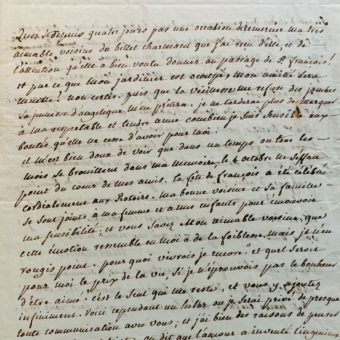 depuis quatre jours pas une occasion de remercier ma très
aimable voisine du billet charmant que j'ai reçu d'elle, et de
l'attention qu'elle a bien voulu donner au passage de St françois!
et par ce que mon jardinier est occupé mon amitié sera
muette! non certes, puis que la vieillesse me refuse des jambes
je ne tarderai plus de marquer
à ma respectable et tendre amie combien je suis sensible aux
bontés qu'elle ne cesse d'avoir pour moi.
et m'est bien doux de voir que dans un temps ou tous les
mois se brouillent dans ma mémoire, le 4 octobre ne s'efface
point du coeur de mes amis. la fête de françois a été célébrée
cordialement aux Rotoirs. Ma bonne voisine et sa famille
se sont joints à ma femme et a mes enfants pour émouvoir
ma sensibilité, et vous savez Mon aimable voisine, que
cette émotion ressemble en moi à de la foiblesse mais je n'en
rougis point. pour quoi vivrois je encore? et quel seroit
pour moi le prix de la vie, si je n'éprouvois pas le bonheur
d'être aimé! c'est le seul qui me reste, et vous y ajoutez
infiniment. Voici cependant un hiver ou je serai privé de presque
toute communication avec vous, et j'ai bien des raisons de
on dit que l'amour a inventé